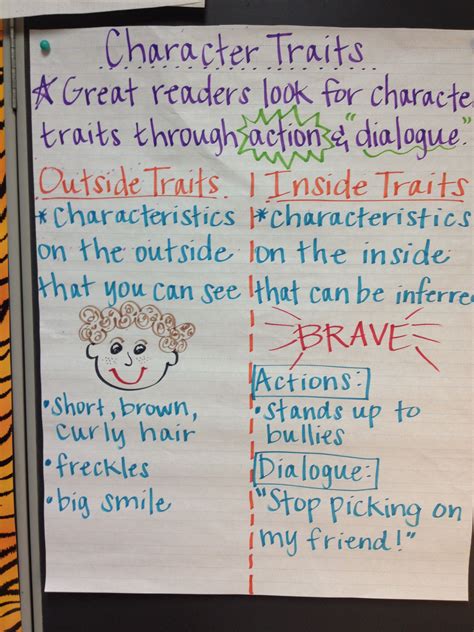 Character Traits
☆ Great readers look for characte
traits through action & "dialogue."
Outside Traits
*Characteristics
on the outside
that you can see
•short, brown,
curly hair
•freckles
•big smile
Inside Traits
*Characteristics
on the inside
that can be inferre
BRAVE
Actions:
•stands up to
bullies
Dialogue:
"Stop picking on
my friend!"